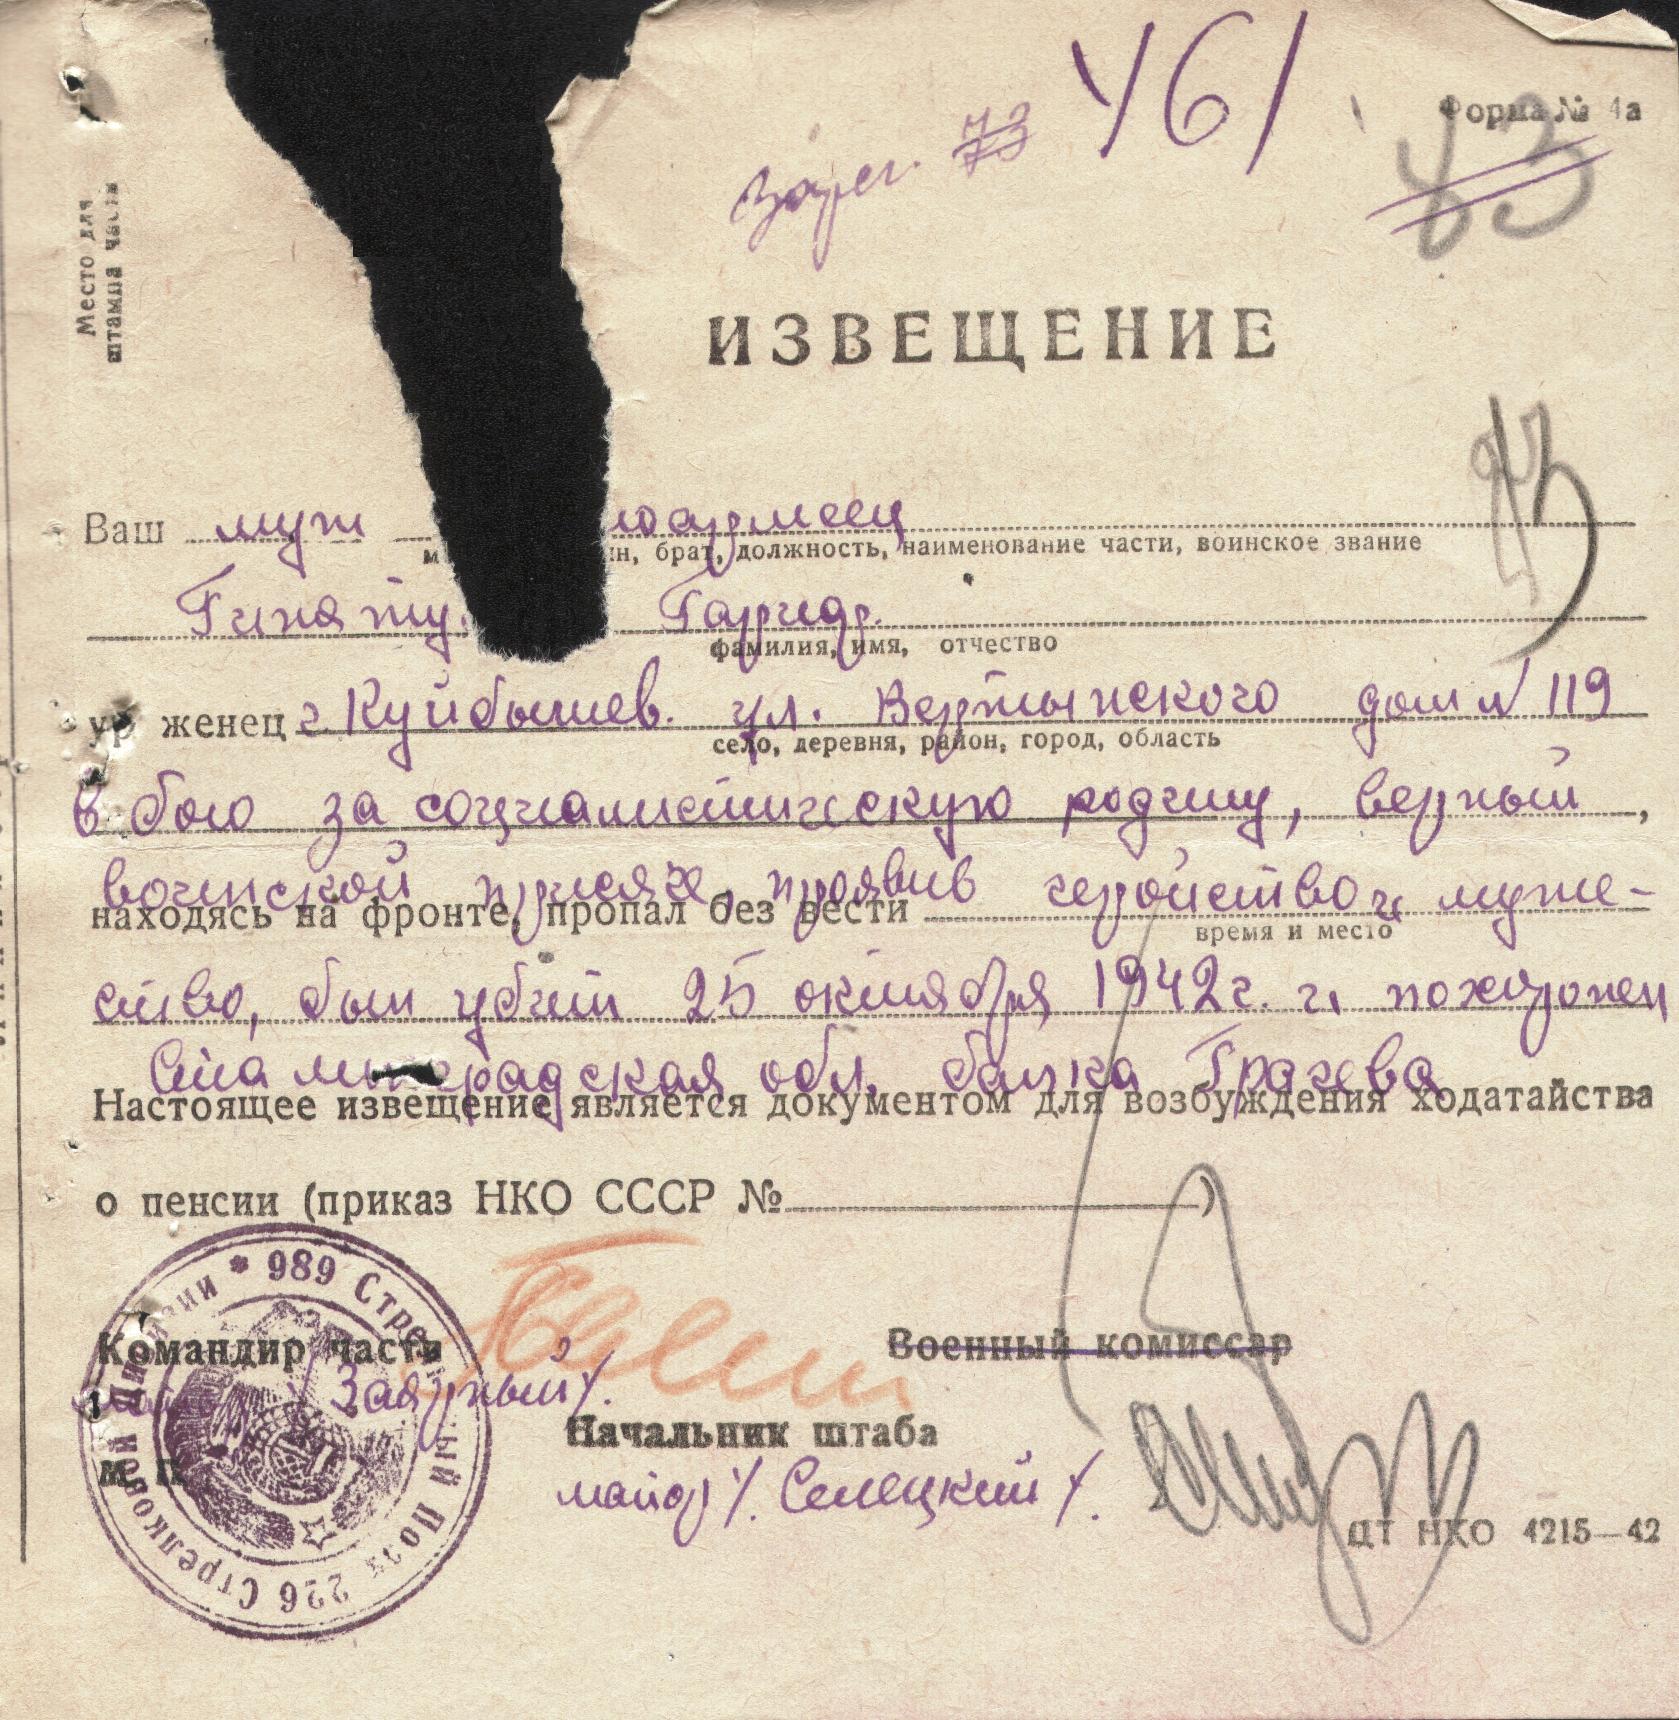 461
зарег. 73
Форма № 4а
73
Место для
штампа части
ИЗВЕЩЕНИЕ
Ваш муж ноармеец
м ин, брат, должность, наименование части, воинское звание
Гиняту Гариф.
фамилия, имя, отчество
ур женец г. Куйбышев. ул. дом № 119
село, деревня, район, город, область
в бою за социалистическую родину, верный ,
воинской присяге, проявив геройство и муже-
находясь на фронте, пропал без вести
время и место
ство, был убит 25 октября 1942 г. и похоронен
Сталинградская обл. балка Грачева
Настоящее извещение является документом для возбуждения ходатайства
о пенсии (приказ НКО СССР № )
989 Стрелковый Полк 226 Стрелковой Дивизии
Командир части
/Заярный/.
М П
Военный комиссар
Начальник штаба
майор /. Селецкий /.
ЦТ НКО 4215—42